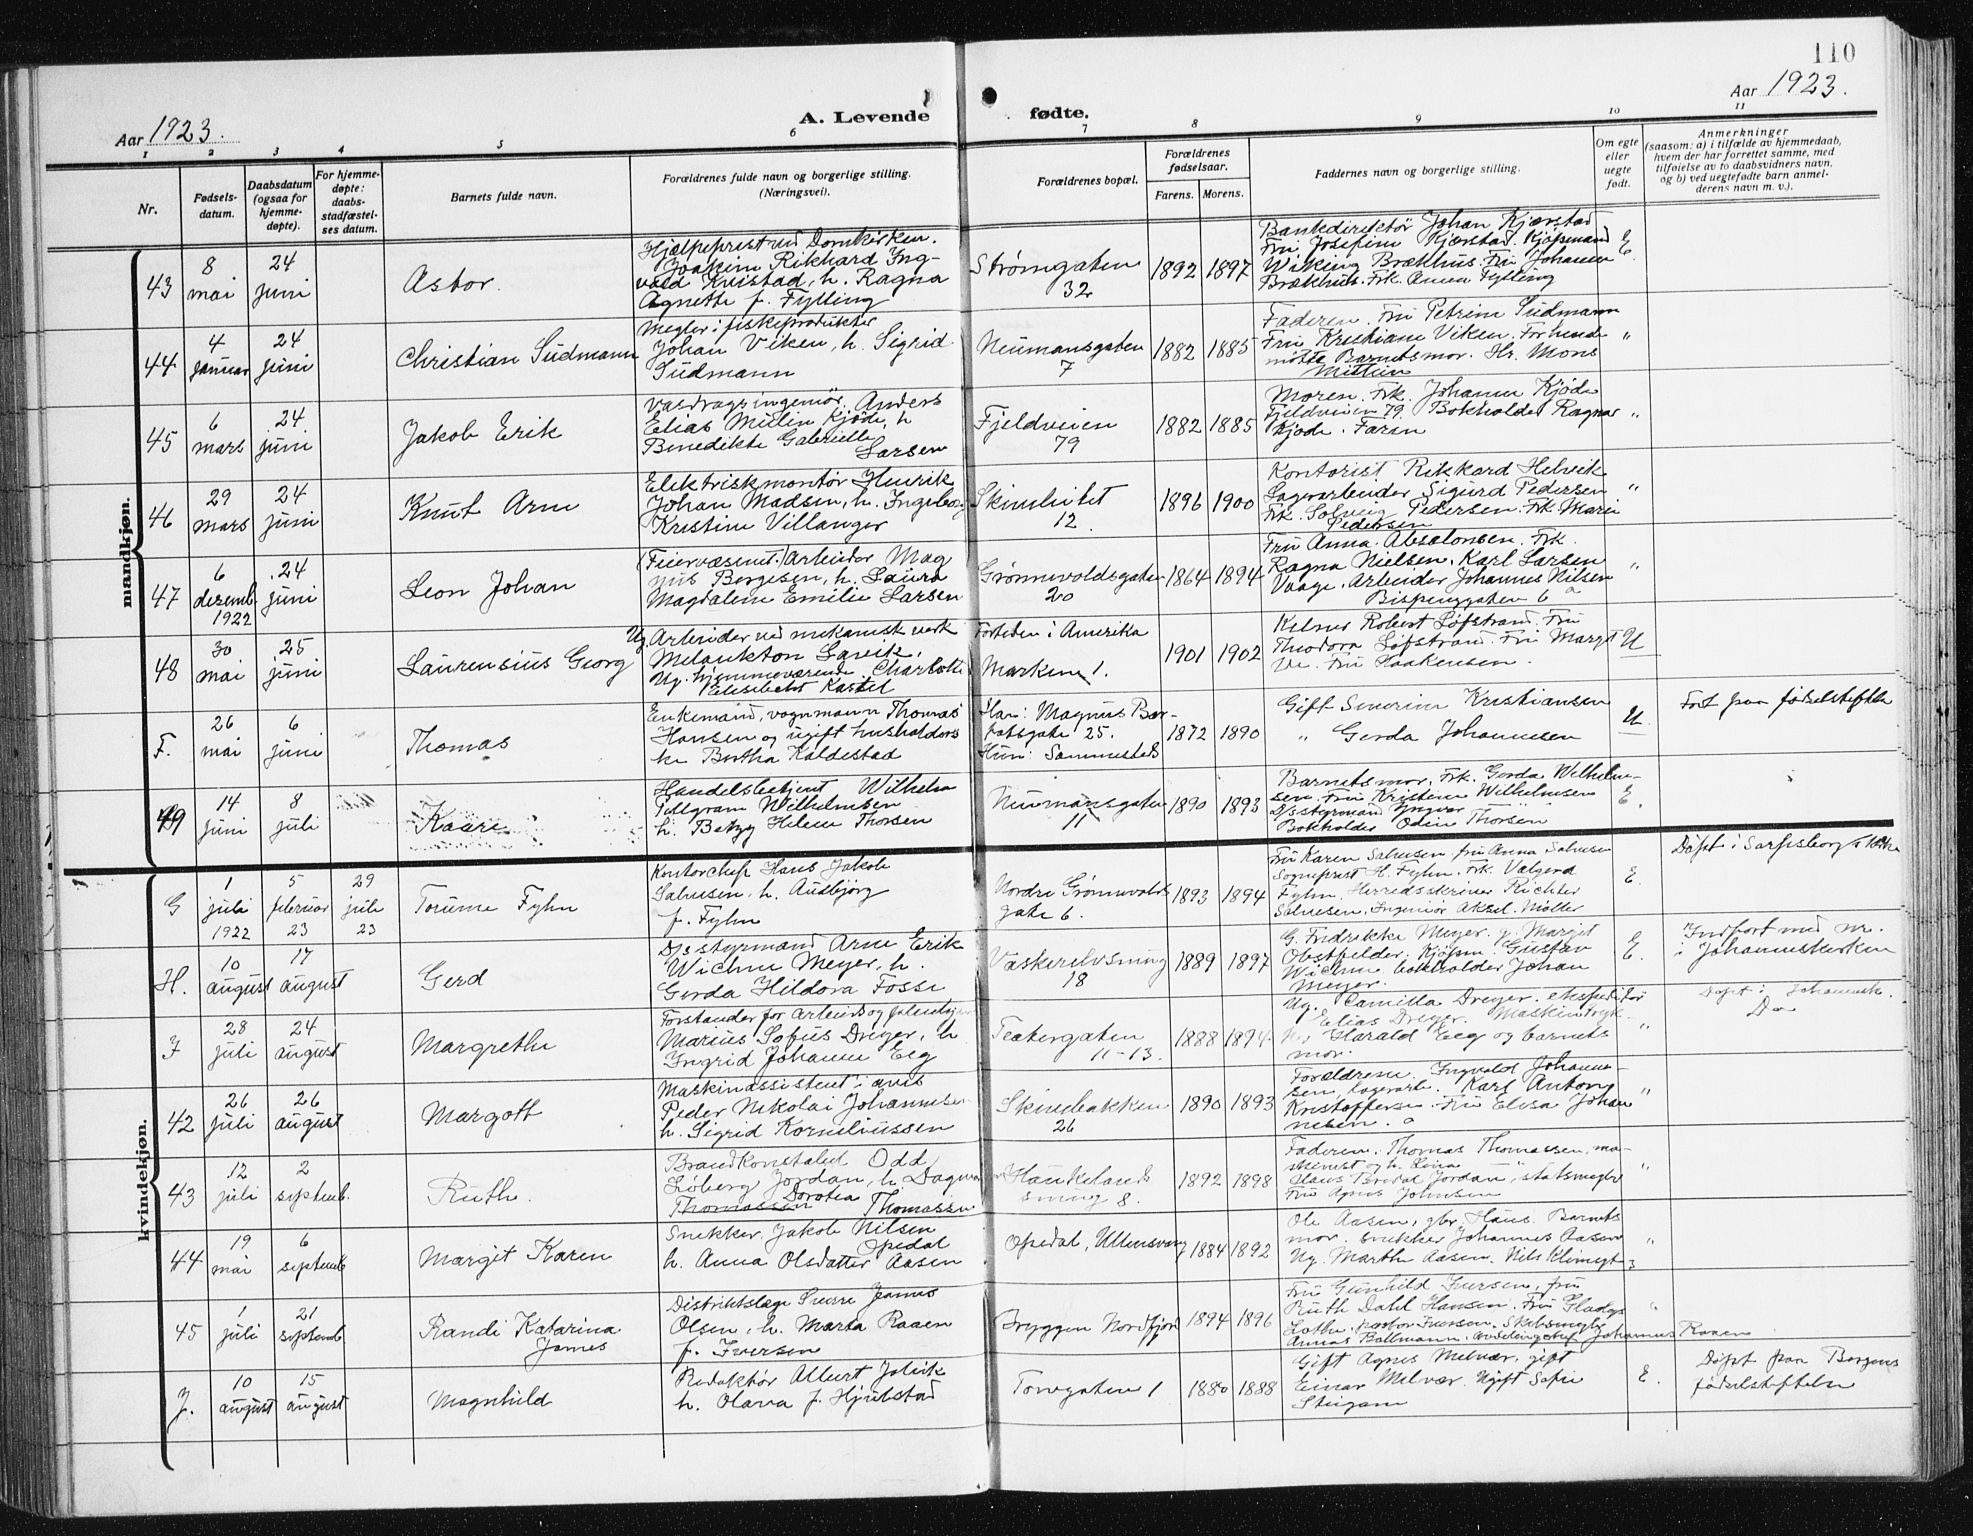 110
Aar 1923.
A. Levende
fødte.
Aar 1923.
1 2 3 4 5 6 7 8 9 10 11
Nr.
Fødsels-
datum.
Daabsdatum
(ogsaa for
hjemme-
døpte).
For hjemme-
døpte:
daabs-
stadfæstel-
ses datum.
Barnets fulde navn.
Forældrenes fulde navn og borgerlige stilling.
(Næringsvei).
Forældrenes bopæl.
Forældrenes
fødselsaar.
Farens. Morens.
Faddernes navn og borgerlige stilling.
Om egte
eller
uegte
født.
Anmerkninger
(saasom: a) i tilfælde av hjemmedaab,
hvem der har forrettet samme, med
tilføielse av to daabsvidners navn,
og b) ved uegtefødte barn anmel-
derens navn m. v.).
mandkjøn.
43
8
mai
24
juni
Astor.
Hjælpeprest ved Domkirken.
Joakim Rikhard Ing-
vald Kvistad, h. Ragna
Agnette f. Fylling
Strømgaten
32
1892 1897
Bankdirektør Johan Kjærstad
Fru Josefine Kjærstad. Kjøpmand
Wiking Brækhus. Fru Johanne
Brækhus. Frk. Anna Fylling
E.
44
4
januar
24
juni
Christian Sudmann
Megler i fiskeprodukter
Johan Viken, h. Sigrid
Sudmann
Neumansgaten
7
1882 1885
Faderen. Fru Petrine Sudmann
Fru Kristiane Viken. Forhende
møtte Barnets mor. Hr. Mons
"
45
6
mars
24
juni
Jakob Erik
Vasdragsingeniør Anders
Elias Kjøde, h
Benedikte Gabrielle
Larsen
Fjeldveien
79
1882 1885
Moren. Frk. Johanne Kjøde
Fjeldveien 79. Bokholder Ragnar
Kjøde. Faren
"
46
29
mars
24
juni
Knut Arne
Elektriskmontør Henrik
Johan Madsen, h. Ingeborg
Kristine Villanger
Skivebakket
12
1896 1900
Kontorist Rikkard Helvik
Lagerarbeider Sigurd Pedersen
Frk. Solveig Pedersen. Frk Marie
Pedersen
"
47
6
dezemb.
1922
24
juni
Leon Johan
(Feiervæsenet.) Arbeider Mag
nus Børgesen, h. Laura
Magdalene Emilie Larsen
Grønnevoldsgaten
20
1864 1894
Fru Anna Absalonsen. Frk.
Ragna Nielsen. Karl Larsen
Vaage. Arbeider Johannes Nilsen
Bispenggaten 6 a
"
48
30
mai
25
juni
Laurensius Georg
Ug. Arbeider ved mekanisk verk
Melankton Lavik,
Ug. hjemmeværende Charlotte
Elisebeth Kastel
Fortiden i Amerika
Marken 1.
1901 1902
Kelner Robert Løfstrand. Fru
Theodora Løfstrand. Fru Margit
Ve. Fru Haakensen.
U
F.
26
mai
6
juni
Thomas
Enkemand, vognmann Thomas
Hansen og ugift husholders
ke Bertha Kaldestad
Han: Magnus Bar-
fotsgate 25.
Hun: Sammesteds
1872 1890
Gift Severine Kristiansen
" Gerda Johannesen
U
Født paa fødselstiftelsen
49
14
juni
8
juli
Kaare
Handelsbetjent Wilhelm
Pillgram Wilhelmsen
h. Betzy Helene Thorsen
Neumansgaten
11
1890 1893
Barnets mor, Frk. Gerda Wilhelm-
sen. Fru Kristine Wilhelmsen
D/s styrmand Yngvar
Bokholder Odin Thorsen
E.
kvindekjøn.
G
1
juli
1922
5
februar
23
29
juli
23
Torunne Fyhn
Kontorchef Hans Jakob
Salvesen, h. Audbjørg
f. Fyhn
Nordre Grønnevolds
gate 6.
1893 1894
Fru Karen Salvesen, fru Anna Salvesen
Sogneprest H. Fyhn. Frk. Valgerd
Fyhn. Herredsskriver Richter
Salvesen. Ingeniør Aksel Møller
E.
Døpt i Sarpsborg kirke
H.
10
august
17
august
Gerd
D/s styrmand Arne Erik
Wichne Meyer, h.
Gerda Hildora Fosse
Vaskerelvsmug
18
1889 1897
G. Fredrikke Meyer. g. Margit
Obstfelder. Kjøpm. Gustav
Wichne bokholder Johan
Meyer.
E.
Indført med nr.
i Johanneskirken
I
28
juli
24
august
Margrethe
Forstander for
Marius Sofus Dreyer, h
Ingrid Johanne Eeg
Teatergaten
11-13.
1888 1894
Ug. Camilla Dreyer. ekspeditør
Elias Dreyer. Maskintryk-
ker Harald Eeg og barnets
mor.
"
Døpt i Johannesk.
Do
42
26
juli
26
august
Margott
Maskinassistent i avis
Peder Nikolai Johannesen
h. Sigrid Korneliussen
Skivebakken
26
1890 1893
Forældrene. Ingvald Johanne-
sen, lagerarb. Karl Anton
Kristoffersen. Fru Elisa Johan
nesen.
"
43
12
juli
2
septemb.
Ruth.
Brandkonstabel Odd
Løberg Jordan, h. Dagmar
Dorotea
Thomassen Thomassen
Haukelands
smug 8.
1892 1898
Faderen. Thomas Thomassen, ma-
skinist og h. Lina
Hans Bredal Jordan, statsmegler
Fru Agnes Johnsen
"
44
19
mai
6
septemb
Margit Karen
Snekker Jakob Nilsen
Opedal
h. Anna Olsdatter Aasen
Opedal, Ullensvang
1884 1892
Ole Aasen, gbr. Hans. Barnets
mor. Snekker Johannes Aasen
Ug. Marthe Aasen. Nils
"
45
1
juli
21
septemb
Randi Katarina
James
Distriktslæge Sverre James
Olsen, h. Marta Raaen
f. Iversen
Bryggen Nordfjord
1894 1896
Fru Gunhild Iversen, fru
Ruth Dahl Hansen. Fru Gladys
Lothe. pastor Iversen. Skibsmegler
Annas Ballmann. Avdelingschef Johannes Raaen
"
J.
10
august
15
august
Magnhild
Redaktør Albert Jolvik
h. Olava f. Hjulstad
Torvgaten 1
1880 1888
Gift Agnes Melvær, gift
Einar Melvær. Ugift Sofie
E.
Døpt paa Bergens
fødselstiftelse